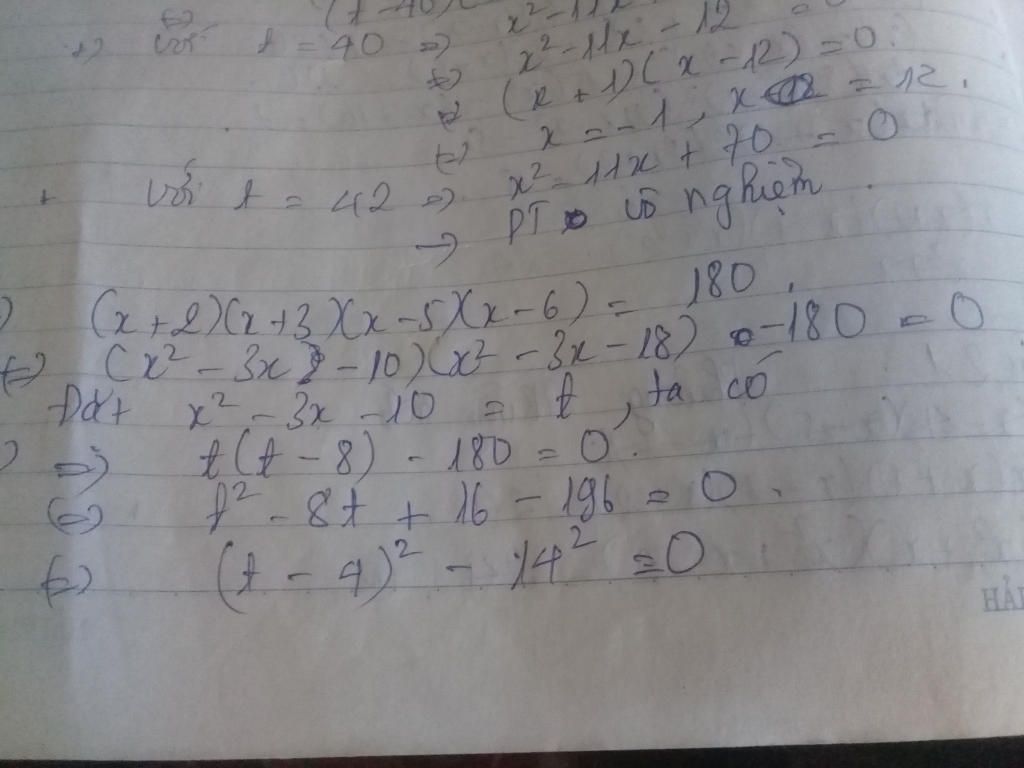 (t-40)(
+) với t = 40 => x² - 11x
<=> x² - 11x - 12 = 0
<=> (x + 1)(x - 12) = 0
<=> x = -1, x = 12.
+ với t = 42 => x² - 11x + 70 = 0
-> PT vô nghiệm.
) (x+2)(x+3)(x-5)(x-6) = 180.
<=> (x² - 3x - 10)(x² - 3x - 18) - 180 = 0
Đặt x² - 3x - 10 = t, ta có
=> t(t - 8) - 180 = 0.
<=> t² - 8t + 16 - 196 = 0.
<=> (t - 4)² - 14² = 0
HẢI